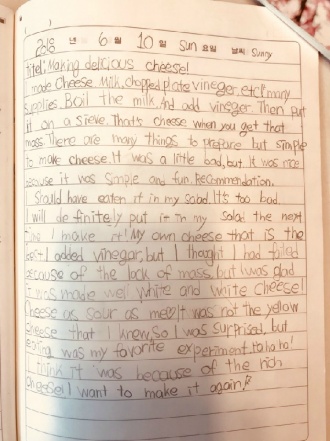 2018 년 6 월 10 일 Sun 요일 날씨 Sunny
Titel: Making delicious cheese!
I made Cheese. Milk, chopped plate vineger, etc!! many
supplies. Boil the milk. And add vinsger. Then put
it on a sieve. That's cheese when you get that
mass. There are many things to prepare but simple
to make cheese. It was a little bad, but. It was nice
because it was simple and fun. Recommendation.
I Sould have eaten it in my salad. It's too bad
I will definitely put it in my salad the next
time I make it! My own cheese that is the
I added vinegar, but I thought I had failed
because of the lack of mass, but I was glad
I was made well white and white cheese!
Cheese as sour as me!! It was not the yellow
cheese that I knew, so I was surprised, but
was my favorite experiment. Ha ha ha!
I think it was because of the rich
cheese! I want to make it again!